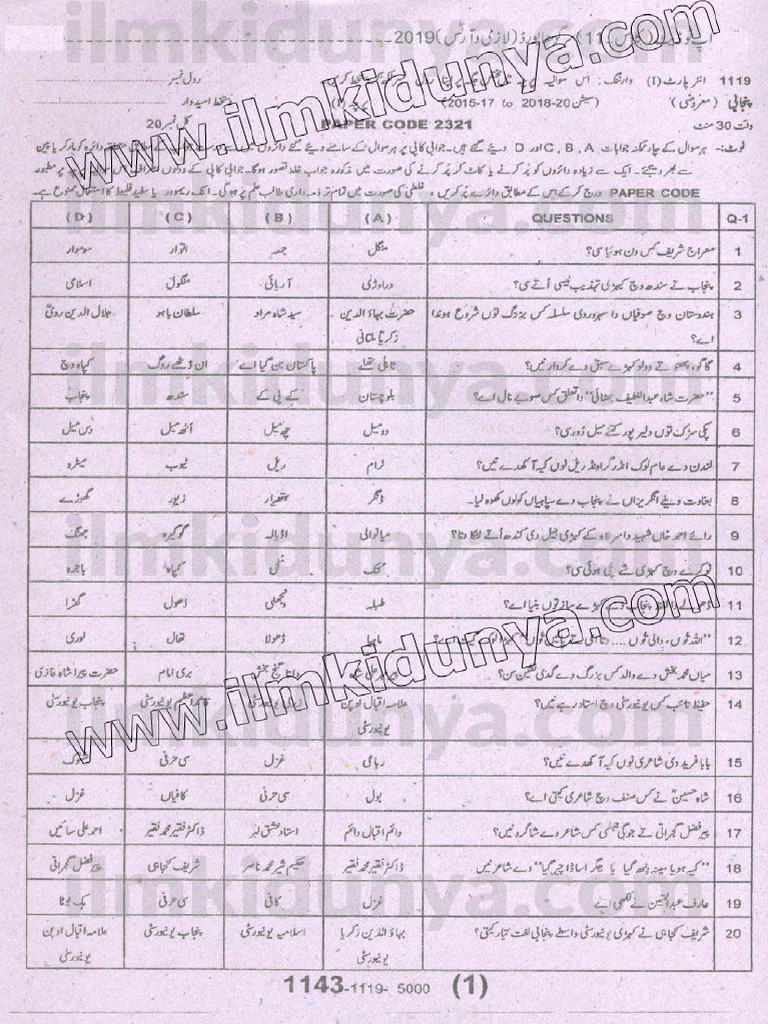 1119 انٹر پارٹ (I)
رول نمبر
پنجابی (معروضی) (سیشن 2015-17 to 2018-20) پرچہ (I)
وقت 30 منٹ PAPER CODE 2321 کل نمبر 20
نوٹ:- ہر سوال کے چار ممکنہ جوابات A ,B ,C اور D دیئے گئے ہیں۔ جوابی کاپی پر ہر سوال کے سامنے دیئے گئے دائروں میں سے
سے بھر دیجئے۔ ایک سے زیادہ دائروں کو پُر کرنے یا کاٹ کر پُر کرنے کی صورت میں مذکورہ جواب غلط تصور ہوگا۔
PAPER CODE درج کر کے اس کے مطابق دائرے پُر کریں، غلطی کی صورت میں تمام تر ذمہ داری طالب علم پر ہوگی۔ انک ریموور یا سفید فلیوڈ کا استعمال ممنوع ہے۔
Q-1 QUESTIONS (A) (B) (C) (D)
1 معراج شریف کس دن ہویا سی؟ منگل جمعہ اتوار سوموار
2 پنجاب تے سندھ وچ کیہڑی تہذیب پہلی آئی سی؟ دراوڑی آریائی منگول اسلامی
3 ہندوستان وچ صوفیاں دا سہروردی سلسلہ کس بزرگ توں شروع ہوندا اے؟ حضرت بہاؤ الدین زکریا ملتانی سید شاہ مراد سلطان باہو جلال الدین رومی
4 گاگو، پھتو تے دولو کیہڑے سبق دے کردار نیں؟ ٹاہلی تھلے پاکستان بن گیا اے ان ڈٹھے روگ کپاہ وچ
5 "حضرت شاہ عبداللطیف بھٹائی" دا تعلق کس صوبے نال اے؟ بلوچستان کے پی کے سندھ پنجاب
6 پکی سڑک توں دلیر پور کتنے میل دور سی؟ دو میل چھ میل اٹھ میل دس میل
7 لندن دے عام لوک انڈر گراؤنڈ ریل نوں کیہ آکھدے نیں؟ ٹرام ریل ٹیوب میٹرو
8 بغاوت ویلے انگریزاں نے پنجاب دے سپاہیاں کولوں کھوہ لیا۔ ڈنگر ہتھیار زیور گھوڑے
9 رائے احمد خاں شہید دا سر لاہ کے کیہڑی جیل دی کندھ اُتے لٹکا دتا؟ میانوالی اڈیالہ گوگیرہ جھنگ
10 ٹوکرے وچ کیہڑی شے پئی ہوئی سی؟ کنک پھٹی کپاہ باجرہ
11 طبلہ ونجھلی ڈھول گھڑا
12 ماہیا ڈھولا تھال لوری
13 میاں محمد بخش دے والد کس بزرگ دے گدی نشین سن؟ داتا گنج بخش بری امام حضرت پیرا شاہ غازی
14 حفیظ تائب کس یونیورسٹی وچ استاد رہے نیں؟ علامہ اقبال اوپن یونیورسٹی قائداعظم یونیورسٹی پنجاب یونیورسٹی
15 بابا فرید دی شاعری نوں کیہ آکھدے نیں؟ رباعی غزل سی حرفی
16 شاہ حسینؒ نے کس صنف وچ شاعری کیتی اے؟ بول سی حرفی کافیاں غزل
17 پیر فضل گجراتی تے جوگی جہلمی کس شاعر دے شاگرد نیں؟ دائم اقبال دائم استاد عشق لہر ڈاکٹر فقیر محمد فقیر احمد علی سائیں
18 "کیہ ہویا سینہ وِنھ گیا یا جگر اساڈا چیر گیا" دے شاعر نیں ڈاکٹر فقیر محمد فقیر حکیم شیر محمد ناصر شریف کنجاہی پیر فضل گجراتی
19 عارف عبدالمتین نے لکھی اے غزل کافی سی حرفی بوٹا
20 شریف کنجاہی نے کیہڑی یونیورسٹی واسطے پنجابی لغت تیار کیتی؟ بہاؤ الدین زکریا یونیورسٹی اسلامیہ یونیورسٹی پنجاب یونیورسٹی علامہ اقبال اوپن یونیورسٹی
1143-1119- 5000 (1)
www.ilmkidunya.com
www.ilmkidunya.com
ilmkidunya.com